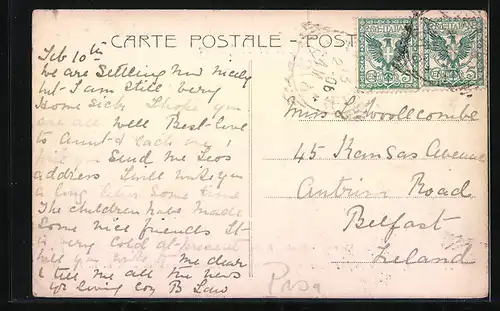 CARTE POSTALE - POST
POSTE ITALIANE
Feb 10th
We are Settling now nicely
but I am still very
Home Sick I hope you
are all well Best love
to Aunt-d each one,
will you Send me Leos
address I will write you
a long letter Some time
The children have made
Some nice friends It
is very cold at present
will you write to me dear
& tell me all the news
Yr loving Coz B Law
Miss L Woollcombe
45 Kansas Avenue
Antrim Road
Belfast
Ireland
Pisa